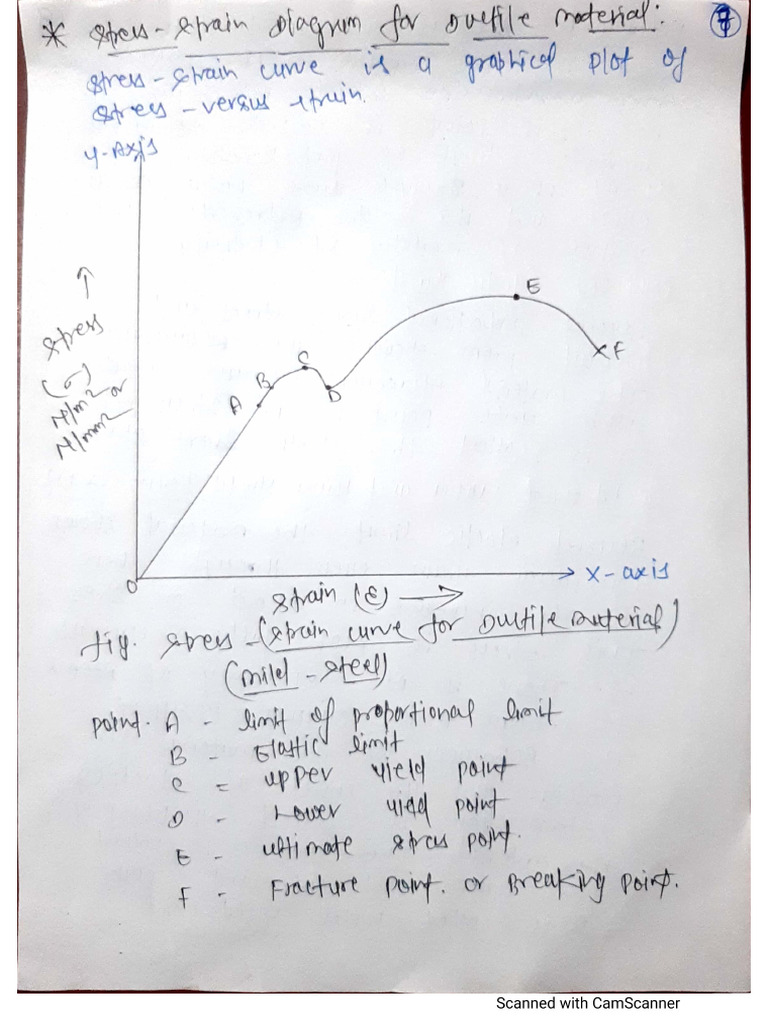 * Stress-Strain Diagram for Ductile material: 7
Stress-Strain curve is a graphical plot of
Stress-versus strain.
Y-Axis
Stress
(σ)
N/m2 or
N/mm2
A
B
C
D
E
F
O
X-axis
Strain (ε)
fig. Stress-(Strain curve for Ductile Material)
(mild-steel)
point. A - limit of proportional limit
B - Elastic limit
C = upper yield point
D - Lower yield point
E - ultimate stress point.
F - Fracture point. or Breaking point.
Scanned with CamScanner